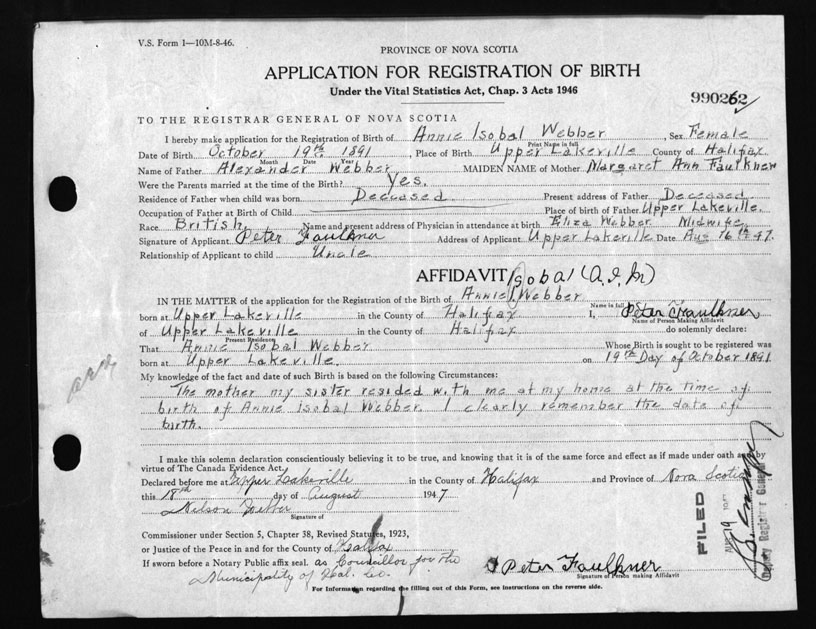 V.S. Form 1—10M-8-46.
PROVINCE OF NOVA SCOTIA
APPLICATION FOR REGISTRATION OF BIRTH
Under the Vital Statistics Act, Chap. 3 Acts 1946
990262
TO THE REGISTRAR GENERAL OF NOVA SCOTIA
I hereby make application for the Registration of Birth of Annie Isobal Webber, Sex Female
Print Name in full
Date of Birth October 19th 1891, Place of Birth Upper Lakeville County of Halifax
Month Date Year
Name of Father Alexander Webber MAIDEN NAME of Mother Margaret Ann Faulkner
Were the Parents married at the time of the Birth? Yes.
Residence of Father when child was born Deceased Present address of Father Deceased
Occupation of Father at Birth of Child Place of birth of Father Upper Lakeville.
Race British Name and present address of Physician in attendance at birth Eliza Webber Midwife
Signature of Applicant Peter Faulkner Address of Applicant Upper Lakeville Date Aug 16th 47.
Relationship of Applicant to child Uncle
AFFIDAVIT Isobal (A.J.M)
IN THE MATTER of the application for the Registration of the Birth of Annie Webber
born at Upper Lakeville in the County of Halifax I, Peter Faulkner,
Name in full
Name of Person Making Affidavit
of Upper Lakeville in the County of Halifax do solemnly declare:
Present Residence
That Annie Isobal Webber Whose Birth is sought to be registered was
born at Upper Lakeville on 19th Day of October 1891
My knowledge of the fact and date of such Birth is based on the following Circumstances:
The mother my sister resided with me at my home at the time of
birth of Annie Isobal Webber. I clearly remember the date of
birth.
I make this solemn declaration conscientiously believing it to be true, and knowing that it is of the same force and effect as if made under oath and by
virtue of The Canada Evidence Act.
Declared before me at Upper Lakeville in the County of Halifax and Province of Nova Scotia
this 18th day of August 1947
Nelson Webber
Signature of
Commissioner under Section 5, Chapter 38, Revised Statutes, 1923,
or Justice of the Peace in and for the County of Halifax
If sworn before a Notary Public affix seal. as Councillor for the
Municipality of Hal. Co.
Peter Faulkner
Signature of Person making Affidavit
For Information regarding the filling out of this Form, see instructions on the reverse side.
FILED
AUG 19
Deputy Registrar General